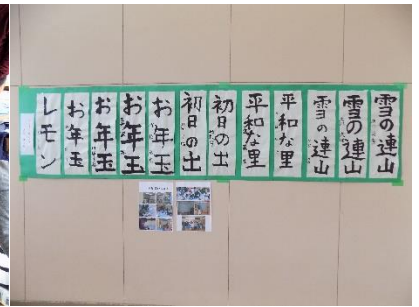 雪の連山
雪の連山
雪の連山
平和な里
平和な里
初日の出
初日の出
お年玉
お年玉
お年玉
お年玉
レモン